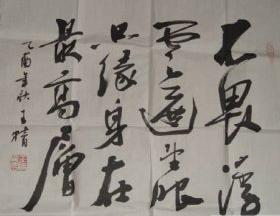 不畏浮
雲遮望眼
只緣身在
最高層
乙酉年秋王